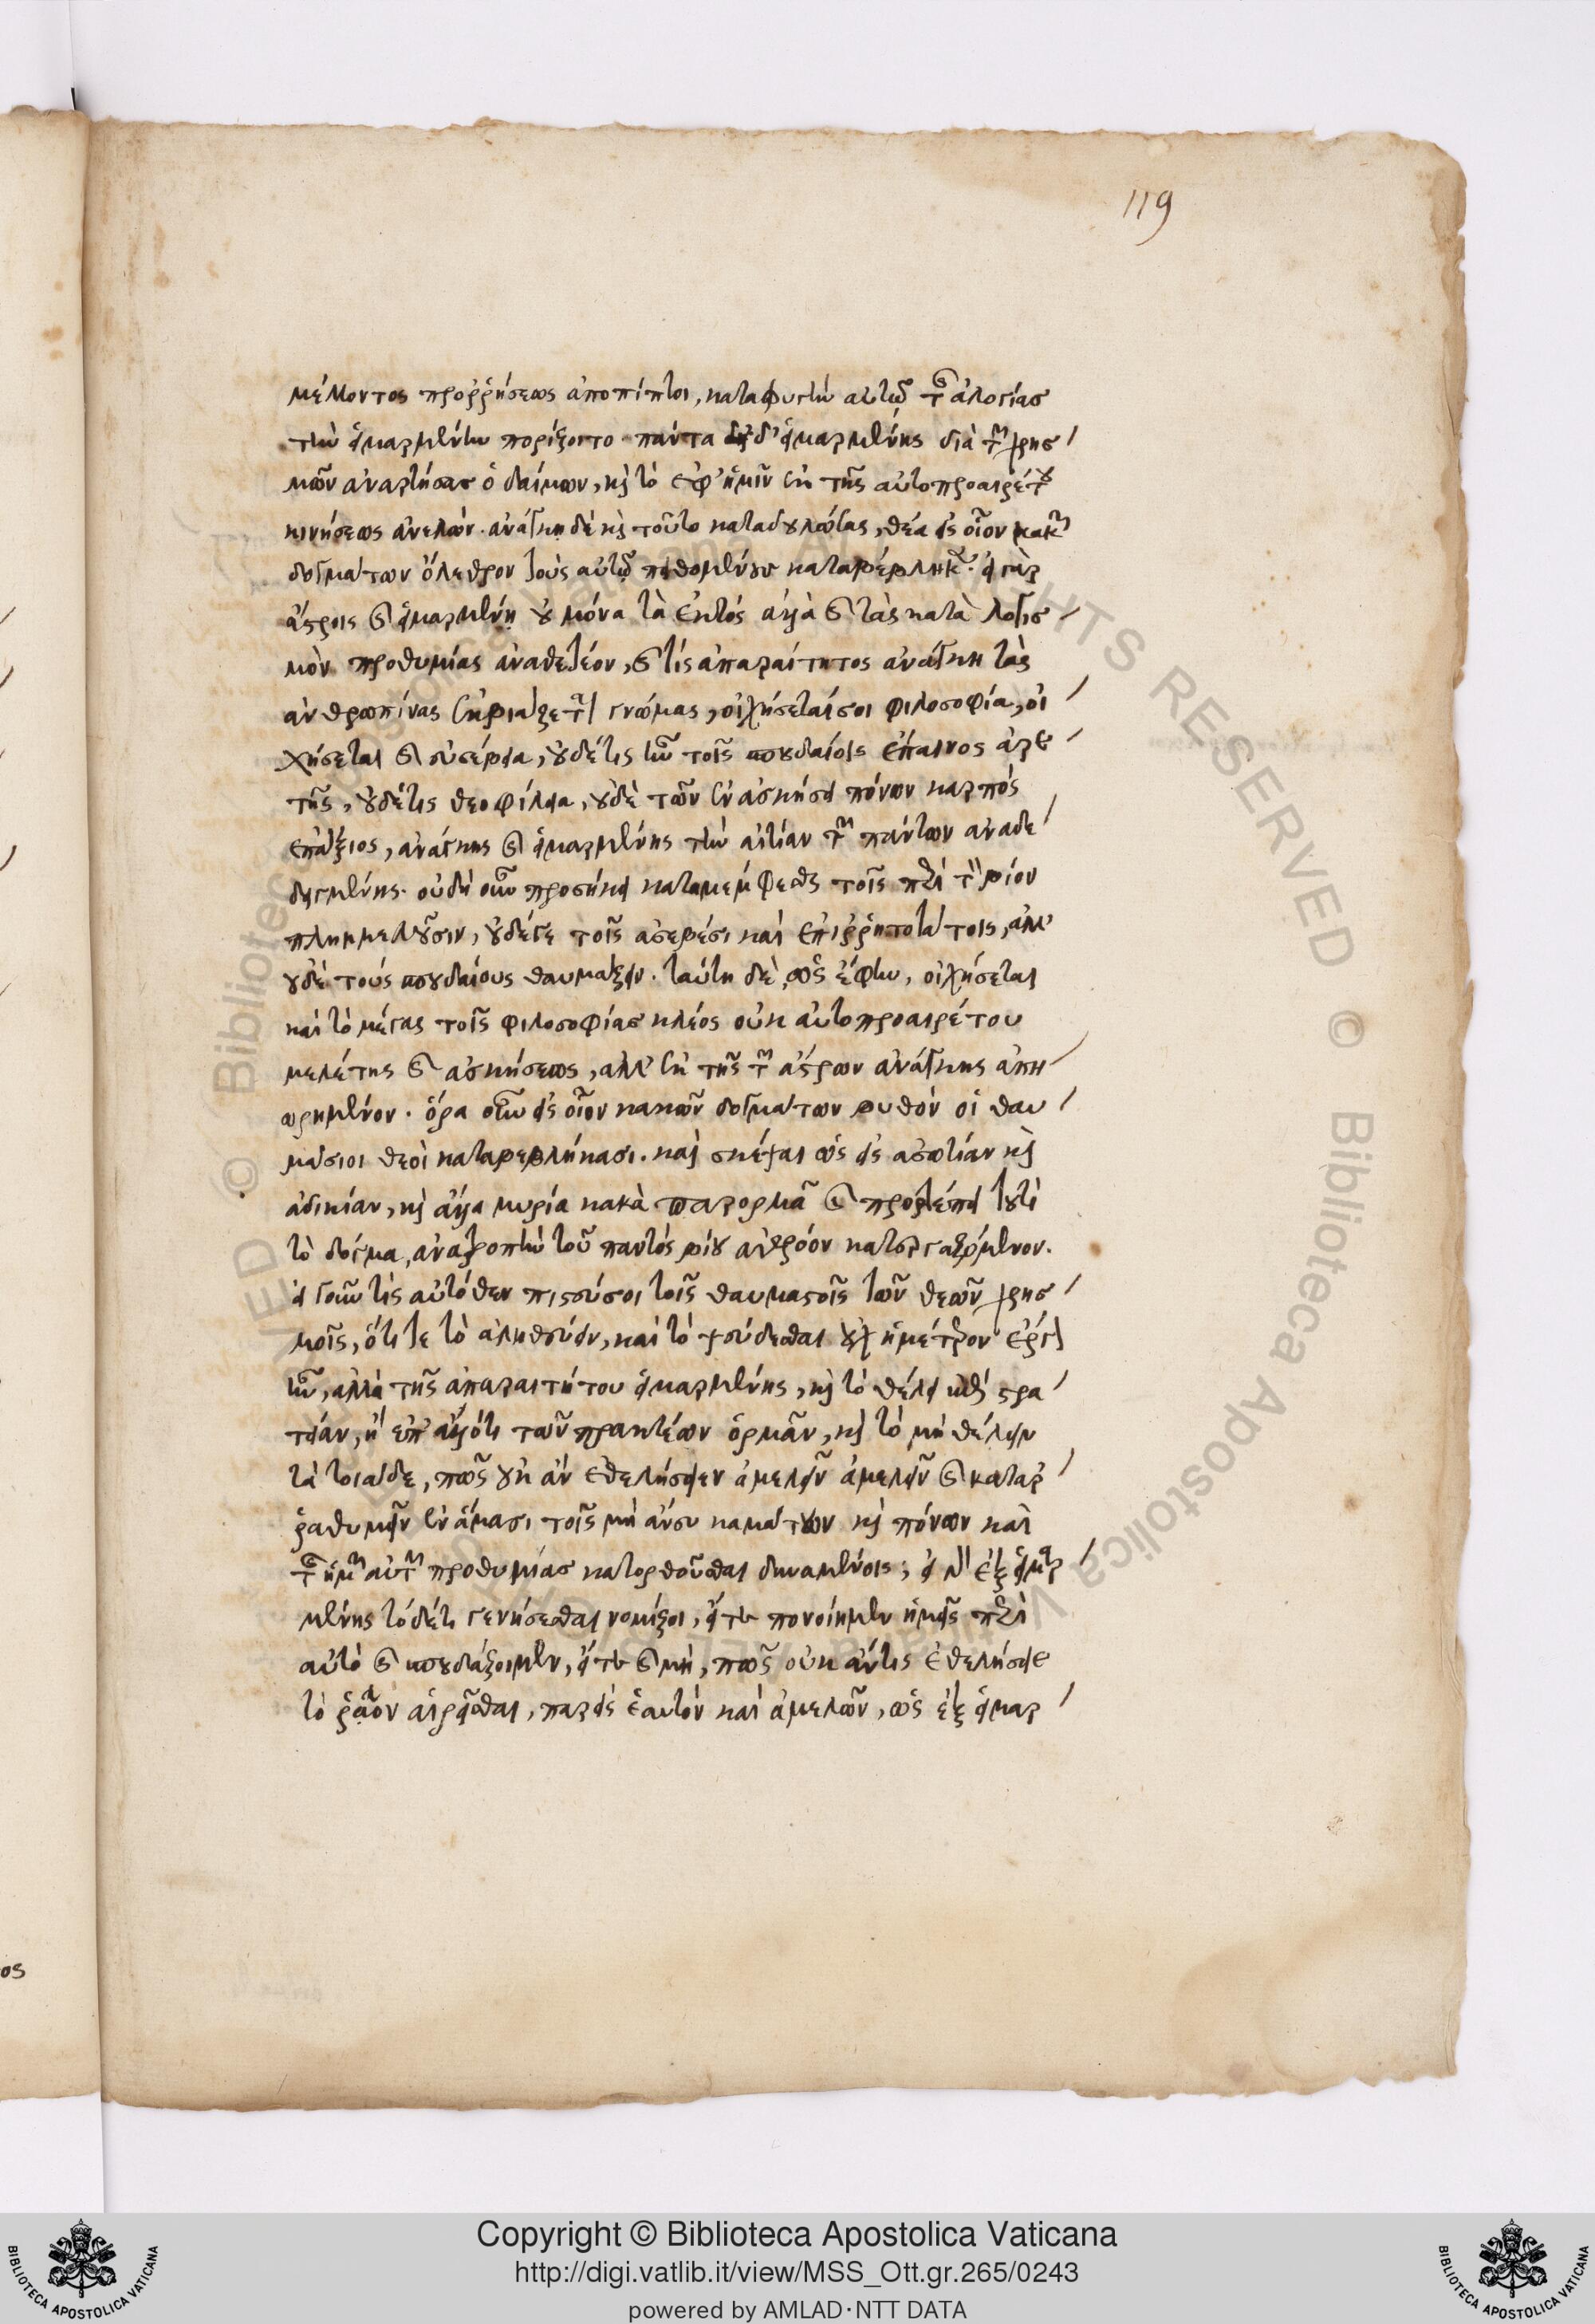 119
μέλλοντος προῤῥήσεως ἀποπίπτοι, καταφυγὴν αὐτῷ τῆς ἀλογίας
τὴν εἱμαρμένην πορίζοιτο. πάντα δ' εἱμαρμένης διὰ τῶν χρησ
μῶν ἀναρτήσας ὁ δαίμων, καὶ τὸ ἐφ' ἡμῖν ἐκ τῆς αὐτοπροαιρέτου
κινήσεως ἀνελὼν. ἀνάγκῃ δὲ καὶ τοῦτο καταδουλώσας, θέα εἰς οἷον κακῶν
δογμάτων ὄλεθρον τοὺς αὐτῷ πειθομένους καταβέβληκεν. εἰ γὰρ
ἄστροις καὶ εἱμαρμένῃ οὐ μόνα τὰ ἐκτὸς ἀλλὰ καὶ τὰς κατὰ λογισ
μὸν προθυμίας ἀναθετέον, καὶ τίς ἀπαραίτητος ἀνάγκη τὰς
ἀνθρωπίνας ἐκβιάζεται γνώμας, οἰχήσεταί σοι φιλοσοφία, οἰ
χήσεται καὶ εὐσέβεια, οὐδέ τις ἦν τοῖς σπουδαίοις ἔπαινος ἀρε
τῆς, οὐδέ τις θεοφίλεια, οὐδὲ τῶν ἐν ἀσκήσει πόνων καρπὸς
ἐπάξιος, ἀνάγκης καὶ εἱμαρμένης τὴν αἰτίαν τῶν πάντων ἀναδε
δεγμένης. οὐδὴ οὖν προσήκει καταμέμφεσθαι τοῖς περὶ τὸν βίον
πλημμελοῦσιν, οὐδέ γε τοῖς ἀσεβέσι καὶ ἐπιῤῥητοτάτοις, ἀλλ'
οὐδὲ τοὺς σπουδαίους θαυμάζειν. ταύτῃ δὲ, ὡς ἔφην, οἰχήσεται
καὶ τὸ μέγας τοῖς φιλοσοφίας κλέος οὐκ αὐτοπροαιρέτου
μελέτης καὶ ἀσκήσεως, ἀλλ' ἐκ τῆς τῶν ἄστρων ἀνάγκης ἀπη
ωρημένον. ὅρα οὖν εἰς οἷον κακῶν δογμάτων βυθὸν οἱ θαυ
μάσιοι θεοὶ καταβεβλήκασι. καὶ σκέψαι ὡς εἰς ἀσωτίαν καὶ
ἀδικίαν, καὶ ἄλλα μυρία κακὰ παρορμᾷ καὶ προτρέπει τουτὶ
τὸ δόγμα, ἀνατροπὴν τοῦ παντὸς βίου ἀθρόον κατεργαζόμενον.
εἰ γοῦν τις αὐτόθεν πιστεύσοι τοῖς θαυμαστοῖς τῶν θεῶν χρησ
μοῖς, ὅτι τε τὸ ἀληθεύειν, καὶ τὸ ψεύδεσθαι οὐχ ἡμέτερον ἔργον
ἦν, ἀλλὰ τῆς ἀπαραιτήτου εἱμαρμένης, καὶ τὸ θέλειν ἐπὶ στρα
τείαν, ἢ ἐπ' ἄλλό τι τῶν πρακτέων ὁρμᾶν, καὶ τὸ μὴ θέλειν
τὰ τοιάδε, πῶς οὐκ ἂν ἐθελήσειεν ἀμελεῖν ἀμελεῖν καὶ καταῤ
ῥαθυμεῖν ἐν ἅπασι τοῖς μὴ ἄνευ καμάτων καὶ πόνων καὶ
τῆς ἡμῶν αὐτῶν προθυμίας κατορθοῦσθαι δυναμένοις; εἰ γὰρ ἐξ εἱμαρ
μένης τόδέ τι γενήσεσθαι νομίζοι, εἴτε πονοίημεν ἡμεῖς περὶ
αὐτὸ καὶ σπουδάζοιμεν, εἴτε καὶ μὴ, πῶς οὐκ ἄν τις ἐθελήσειε
τὸ ῥᾷον αἱρεῖσθαι, παρεὶς ἑαυτὸν καὶ ἀμελῶν, ὡς ἐξ εἱμαρ
ος
Copyright © Biblioteca Apostolica Vaticana
http://digi.vatlib.it/view/MSS_Ott.gr.265/0243
powered by AMLAD·NTT DATA